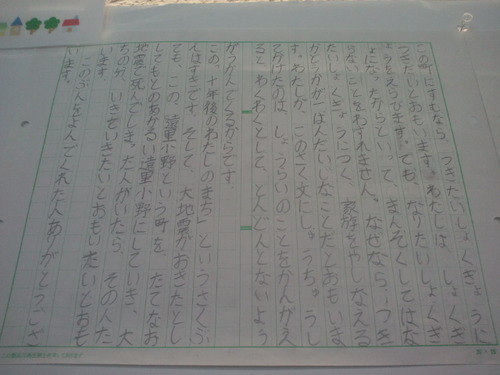 この町にすむなら、つきたいしょくぎょうに
つきたいとおもいます。わたしは、しょくぎ
ょうをえらびます。でも、なりたいしょくぎ
ょにな。たからといって、まんぞくしてはな
らないことをわすれません。なぜなら、つき
たいしょくぎょうにつく、家族をやしなえる
かどうかが一ばんたいじなことだとおもいま
す。わたしが、このさく文にし。うちゅうし
てかけたのは、しょうらいのことをかんがえ
ると、わくわくとして、どんどんとないよう
がうかんでくるからです。
この、十年後のわたしのまちというさくぶ
んはすきです。そして、大地震がおきたとし
ても、この、遠里小野という町を、たてなお
してもとのあかるい遠里小野にしていき、大
地震で死んでしま。た人がいたら、その人た
ちの分、いきていきたいとおもいたいとおも
います。
このぶんをよんでくれた人ありがとうござ
います。